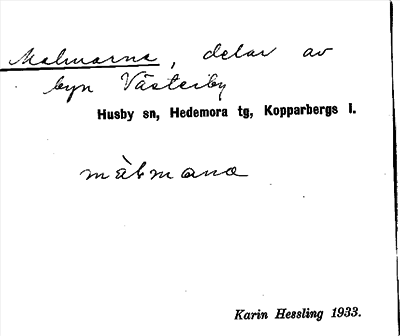 Malmarna, delar av
byn Västerby
Husby sn, Hedemora tg, Kopparbergs l.
Karin Hessling 1933.